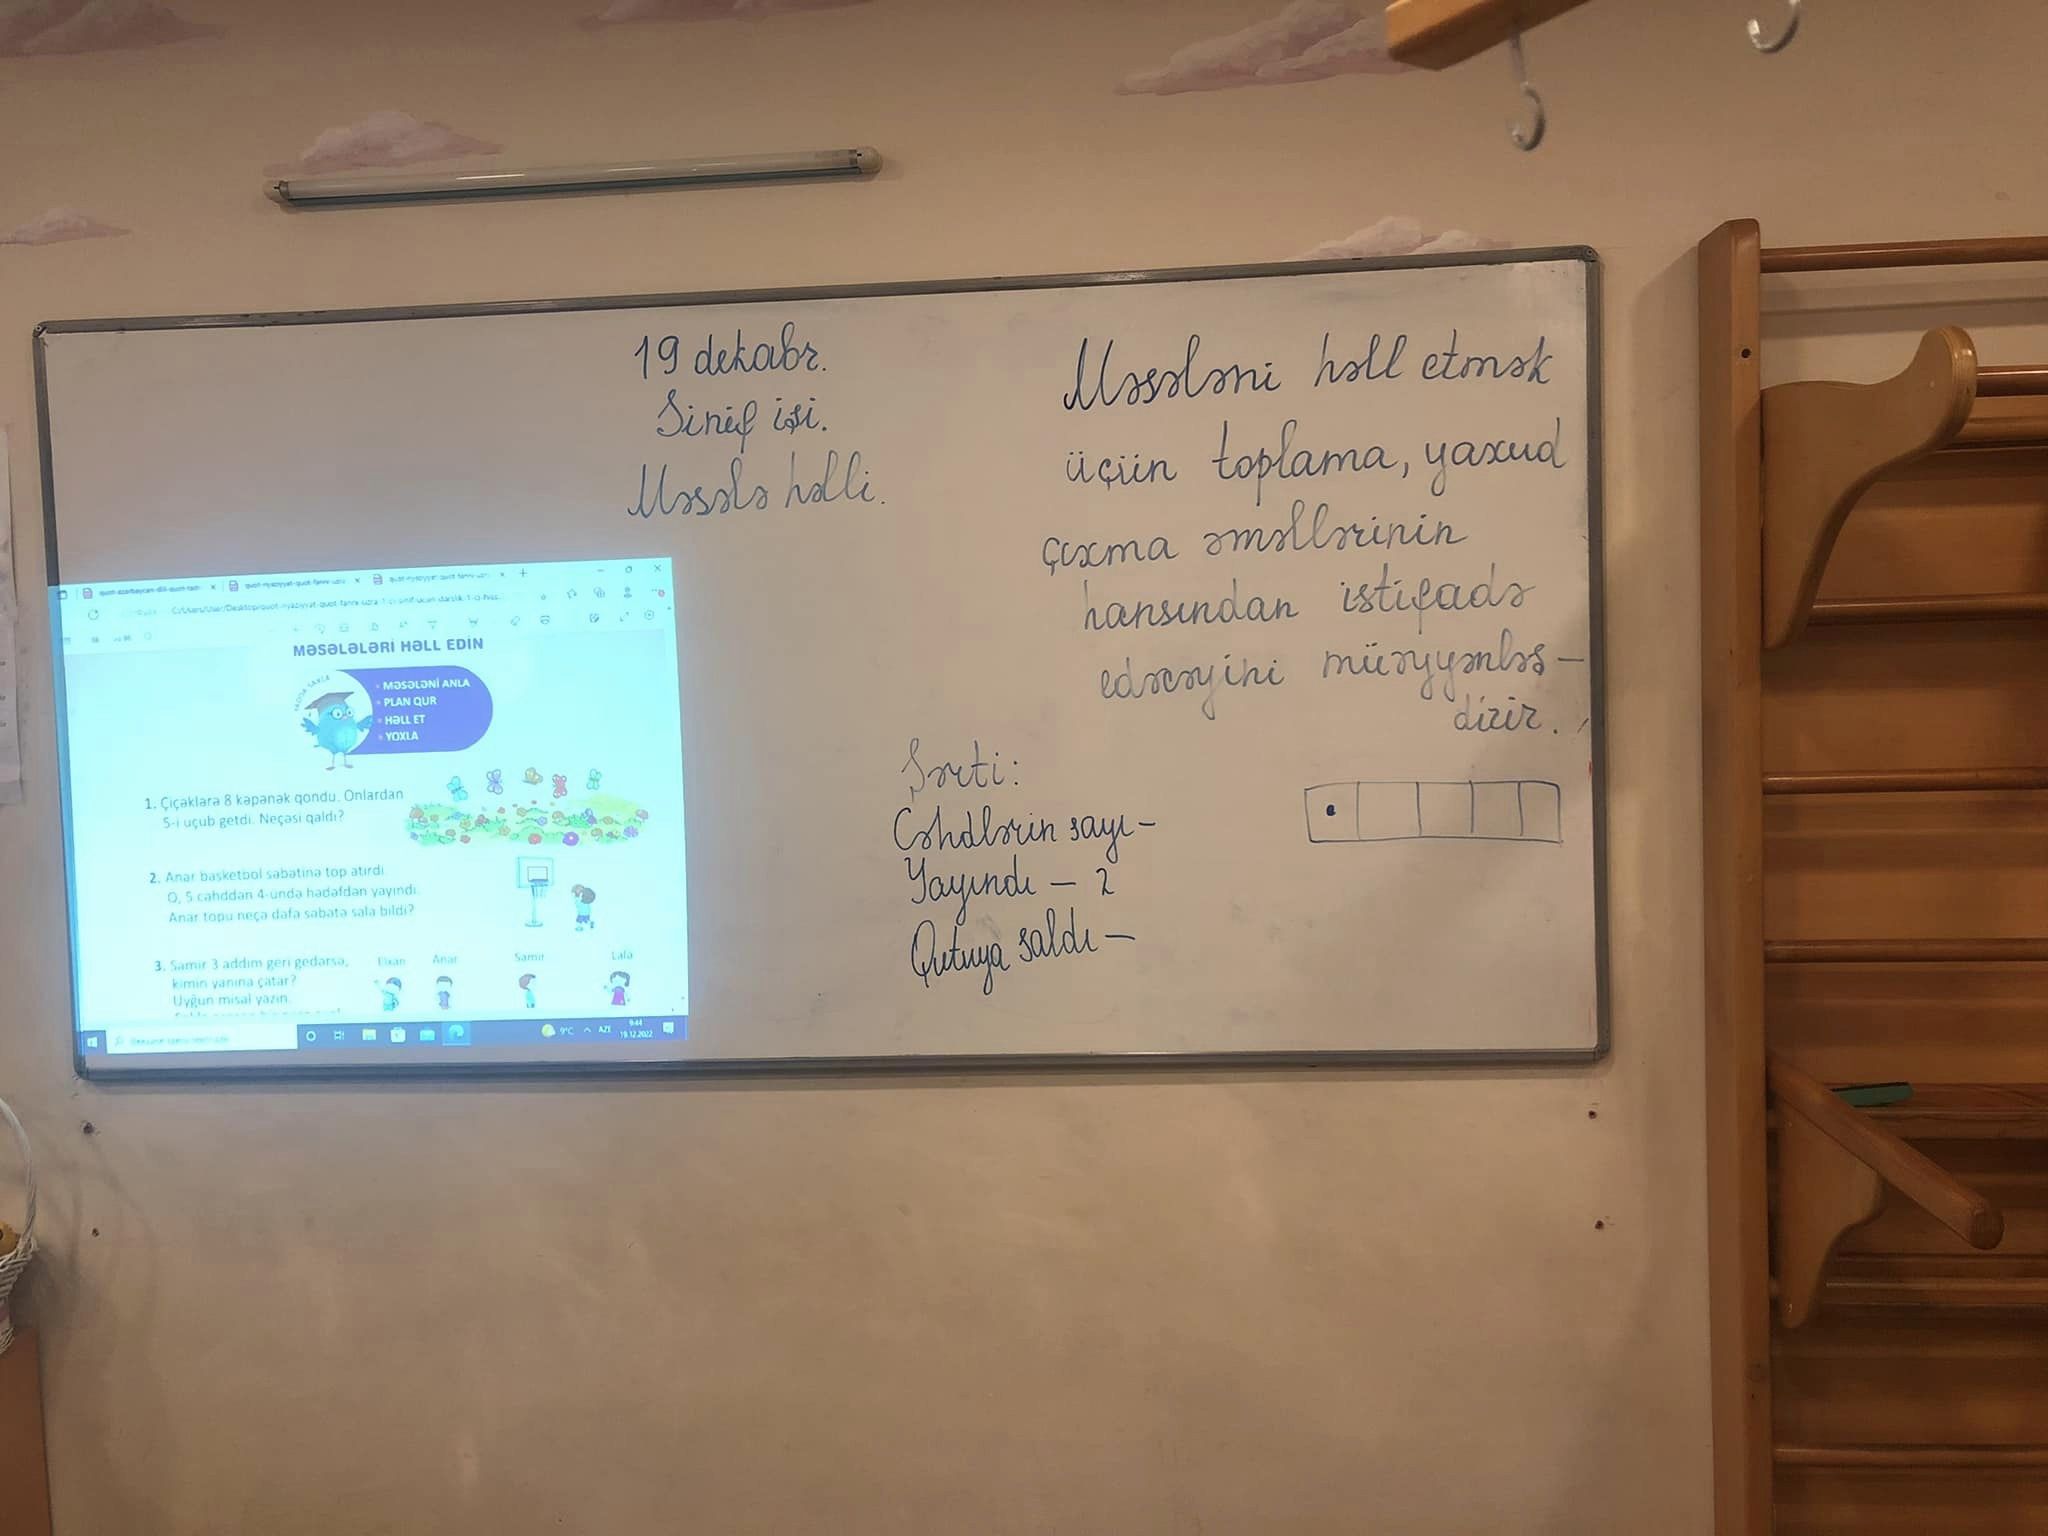 19 dekabr.
Sinif işi.
Məsələ həlli.
Məsələni həll etmək
üçün toplama, yaxud
çıxma əməllərinin
hansından istifadə
edəcəyini müəyyənləş-
dirir.
Şərti:
Cəhdlərin sayı-
Yayındı - 2
Qutuya saldı -
MƏSƏLƏLƏRİ HƏLL EDİN
YADDA SAXLA
• MƏSƏLƏNİ ANLA
• PLAN QUR
• HƏLL ET
• YOXLA
1. Çiçəklərə 8 kəpənək qondu. Onlardan
5-i uçub getdi. Neçəsi qaldı?
2. Anar basketbol səbətinə top atırdı.
O, 5 cəhddən 4-ündə hədəfdən yayındı.
Anar topu neçə dəfə səbətə sala bildi?
3. Samir 3 addım geri gedərsə,
kimin yanına çatar?
Uyğun misal yazın.
Elxan Anar Samir Lalə
9°C AZE
9:44
19.12.2022